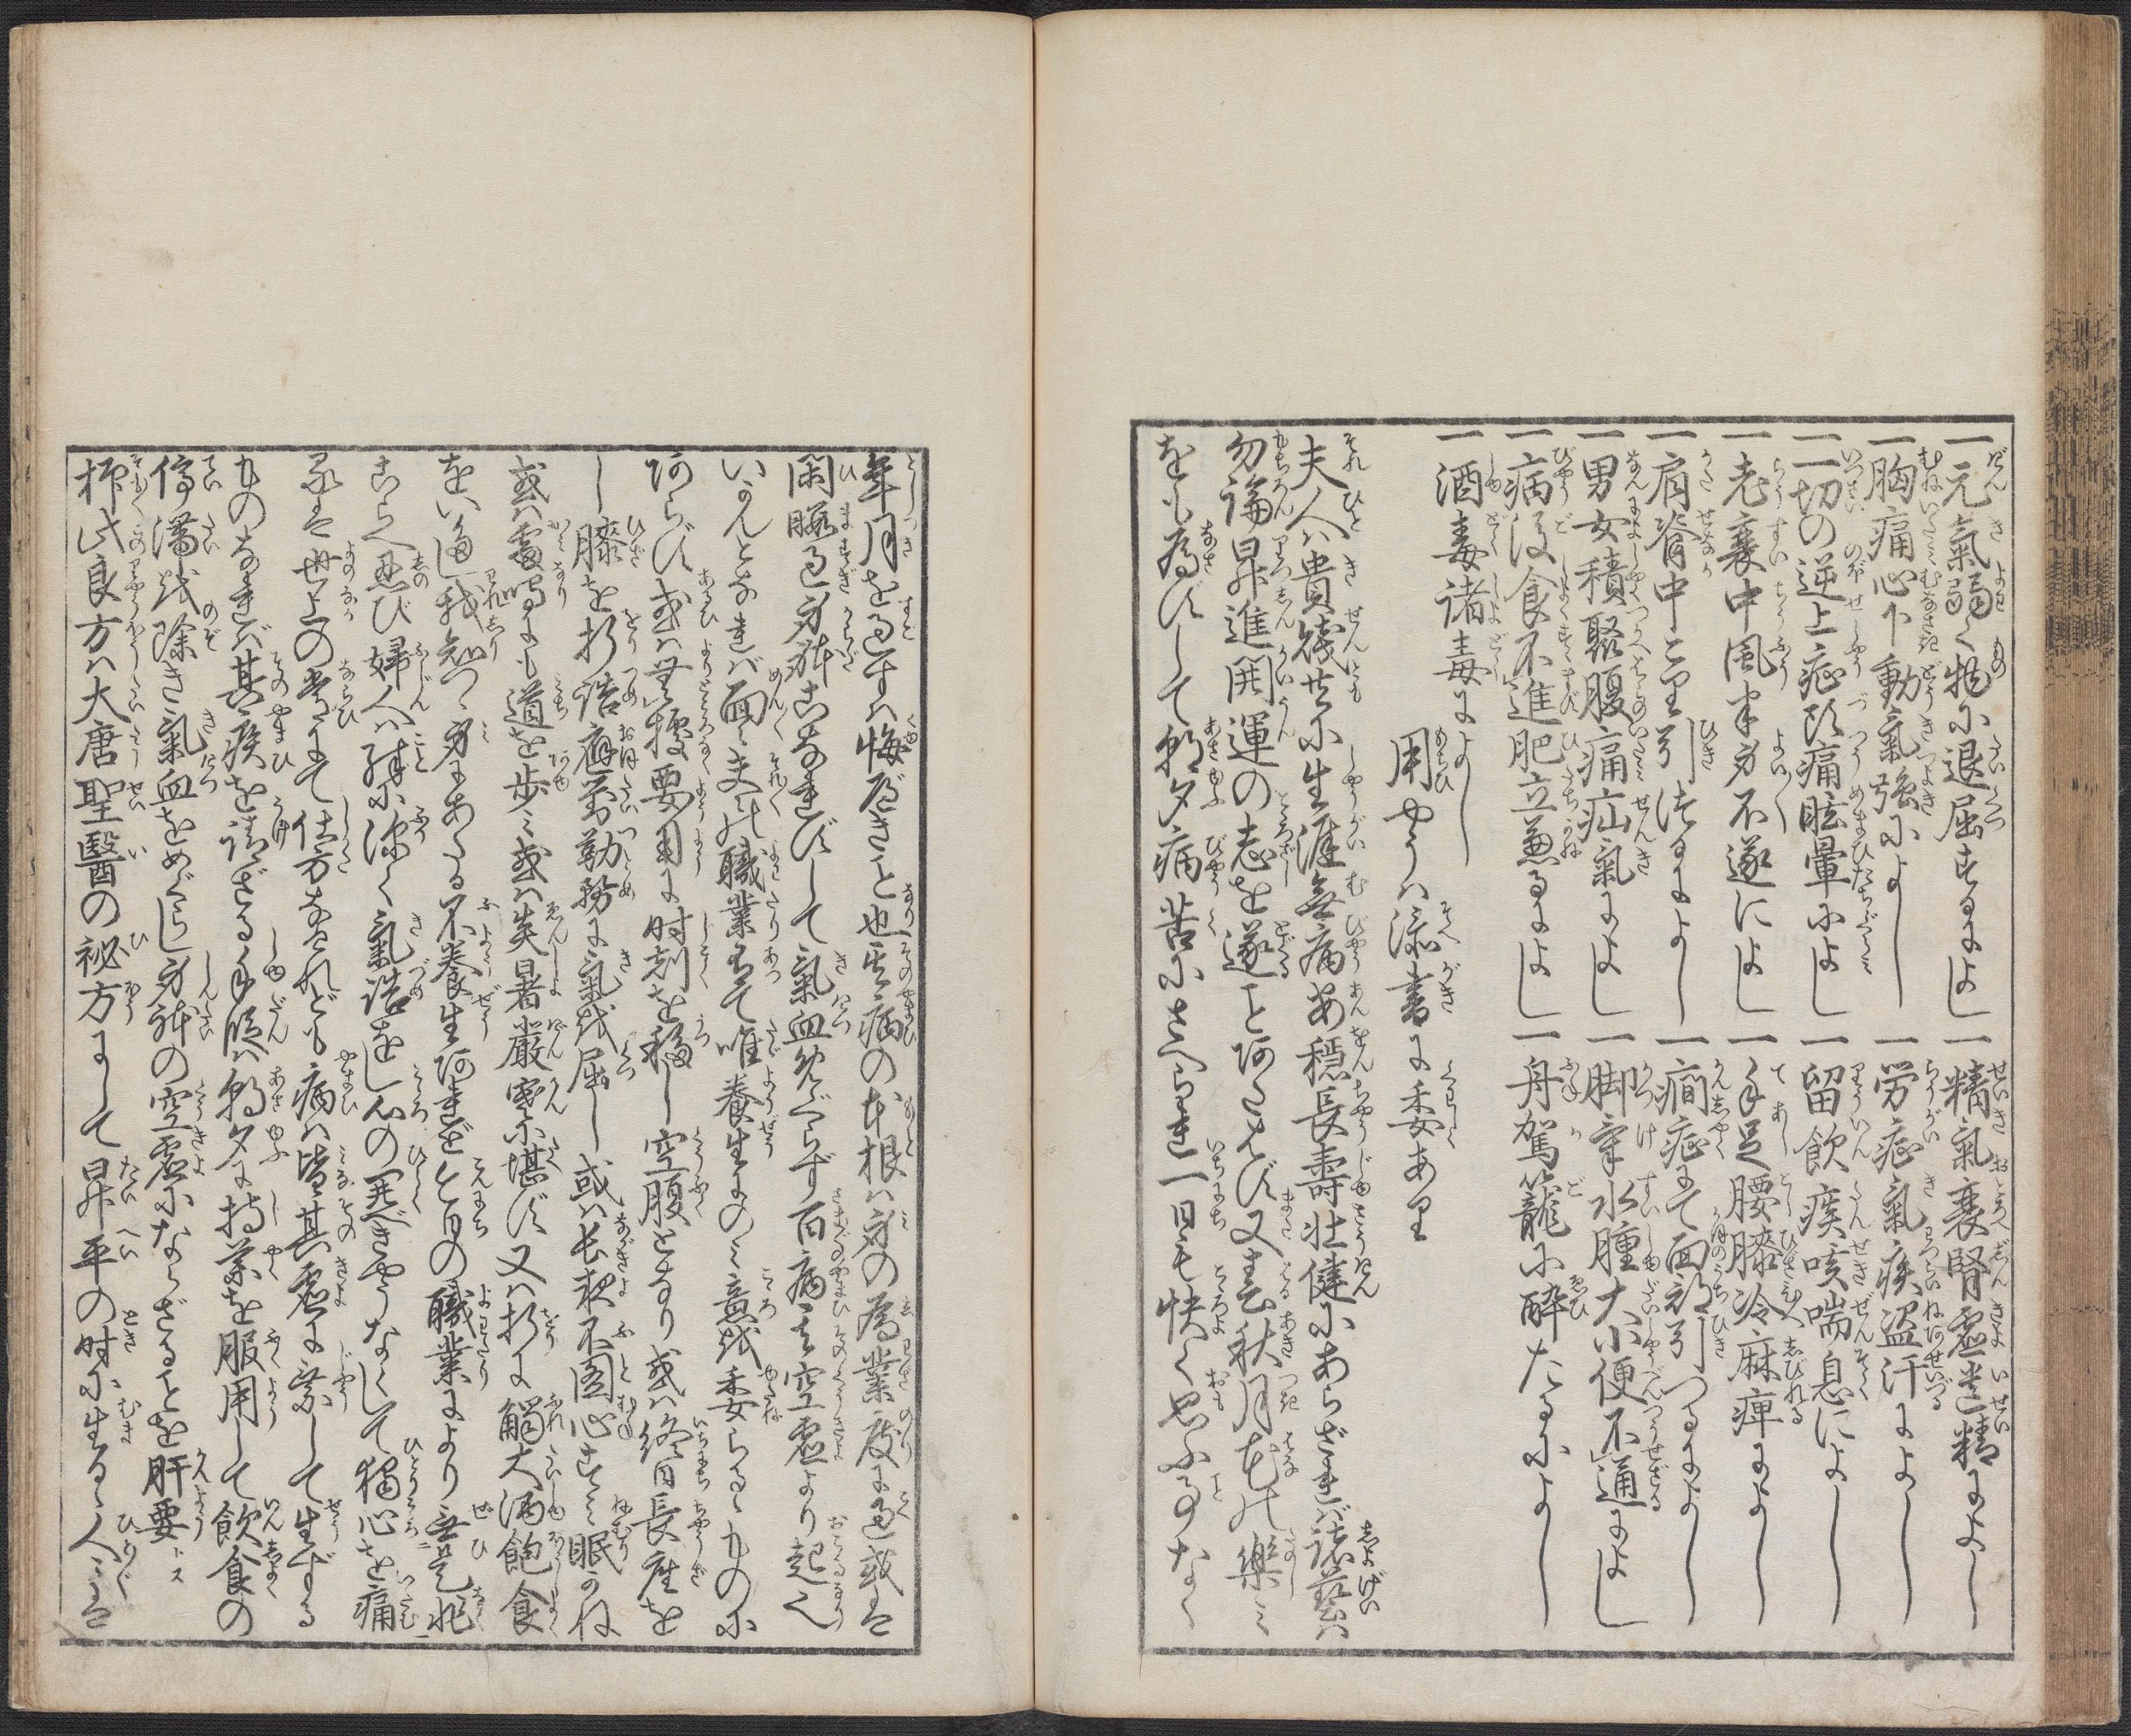 一元氣弱く物に退屈するによし
一精氣衰腎虚遺精によし
一胸痛心下動氣強によし
一労症氣疾盗汗によし
一一切の逆上症頭痛眩暈によし
一留飲痰咳喘息によし
一老衰中風半身不遂によし
一手足腰膝冷麻痺によし
一肩脊中こり引つるによし
一癇症にて面部引つるによし
一男女積聚腹痛疝氣によし
一脚氣水腫大小便不通によし
一病後食不進肥立兼るによし
一舟駕籠に酔たるによし
一酒毒諸毒によし
用やうハ添書に委あり
夫人ハ貴賤共に生涯無病安穏長壽壮健にあらざれバ諸藝ハ
勿論昇進開運の志を遂ことあたはず又春秋月花の樂ミ
をも為ずして朝夕病苦にさへられ一日も快く思ふ事なく
年月を過すハ悔べきこと也其病の本根ハ身の為業度に過或は
閑暇過身体こなれずして氣血めぐらず百病其空虚より起る也
いかんとなれバ面々夫々の職業有て唯養生にのミ意を委らるゝものに
あらず或ハ無據要用に時刻を移し空腹となり或ハ終日長座を
し膝を折詰應對勤務に氣を屈し或ハ長夜不圖心すミ眠かね
或ハ雷鳴にも道を歩ミ或ハ炎暑嚴寒に堪ず又ハ折に觸大酒飽食
をい過し我知つゝ身にあたる不養生あれど今日の職業により無是非
こらへ忍び婦人ハ殊に深く氣詰をし心の開べきやうなくして獨心を痛
る是世上の常にて仕方なけれども病ハ皆其虚に乗して生ずる
ものなれバ其疾を請ざる手段ハ朝夕に持藥を服用して飲食の
停滞を除き氣血をめぐらし身体の空虚にならざることを肝要トス
抑此良方ハ大唐聖醫の祕方にして昇平の時に生るゝ人々は